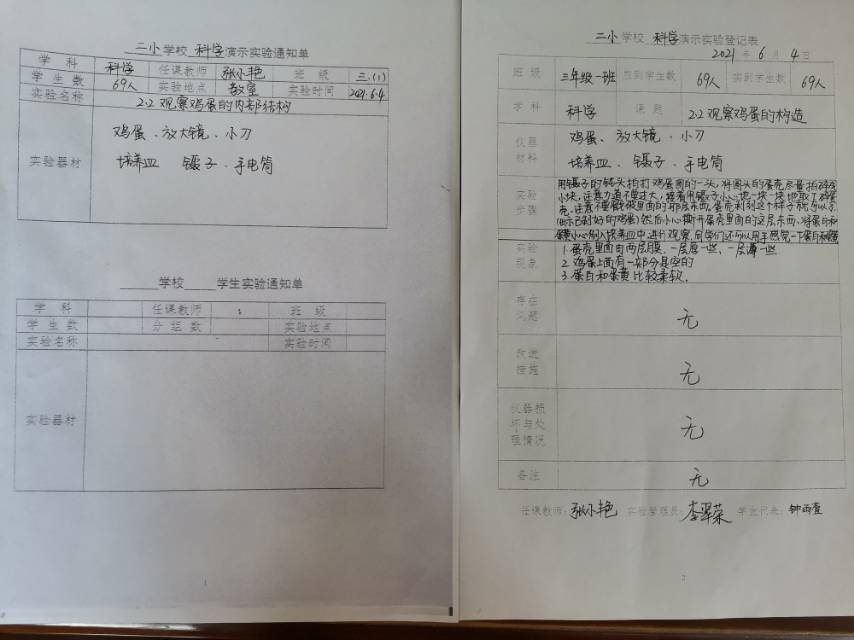 二小学校 科学演示实验通知单
学科 科学 任课教师 张小艳 班级 三.(1)
学生数 69人 实验地点 教室 实验时间 2021.6.4
实验名称 2.2 观察鸡蛋的内部结构
实验器材 鸡蛋、放大镜、小刀
培养皿 镊子、手电筒
学校 学生实验通知单
学科 任课教师 班级
学生数 分组数 实验地点
实验名称 实验时间
实验器材
1
二小学校 科学演示实验登记表
2021年6月4日
班级 三年级一班 应到学生数 69人 实到学生数 69人
学科 科学 课题 2.2 观察鸡蛋的构造
仪器材料 鸡蛋、放大镜、小刀
培养皿、镊子、手电筒
实验步骤 用镊子的镊头拍打鸡蛋圆的一头,将圆头的蛋壳尽量拍碎成
小块,注意力道不要过大,接着用镊子小心地一块一块地取下碎蛋
壳,注意不要戳破里面的那层东西,蛋壳剥到这个样子就可以了
(出示已剥好的鸡蛋)然后小心撕开蛋壳里面的这层东西,将蛋白和
蛋黄小心倒入培养皿中进行观察,同学们还可以用手感觉一下蛋白和蛋黄
实验现象 1.蛋壳里面有两层膜,一层厚一些,一层薄一些
2.鸡蛋上面有一部分是空的
3.蛋白和蛋黄比较柔软.
存在问题 无
改进措施 无
仪器损坏与处理情况 无
备注 无
任课教师:张小艳 实验管理员:李翠荣 学生代表:钟
2